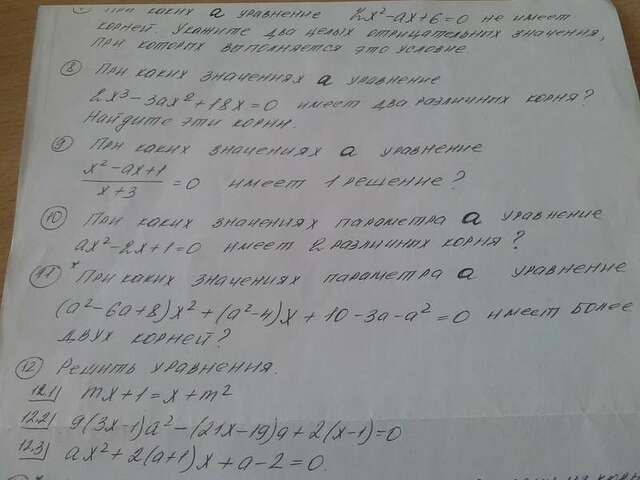 При каких а уравнение 2x² - ax + 6 = 0 не имеет
корней. Укажите два целых отрицательных значения,
при которых выполняется это условие.
8 При каких значениях а уравнение
2x³ - 3ax² + 18x = 0 имеет два различных корня?
Найдите эти корни.
9 При каких значениях а уравнение
(x² - ax + 1)/(x + 3) = 0 имеет 1 решение?
10 При каких значениях параметра а уравнение
ax² - 2x + 1 = 0 имеет 2 различных корня?
11* При каких значениях параметра а уравнение
(a² - 6a + 8)x² + (a² - 4)x + 10 - 3a - a² = 0 имеет более
двух корней?
12 Решить уравнения.
12.1) mx + 1 = x + m²
12.2) 9(3x - 1)a² - (21x - 19)a + 2(x - 1) = 0
12.3) ax² + 2(a + 1)x + a - 2 = 0.